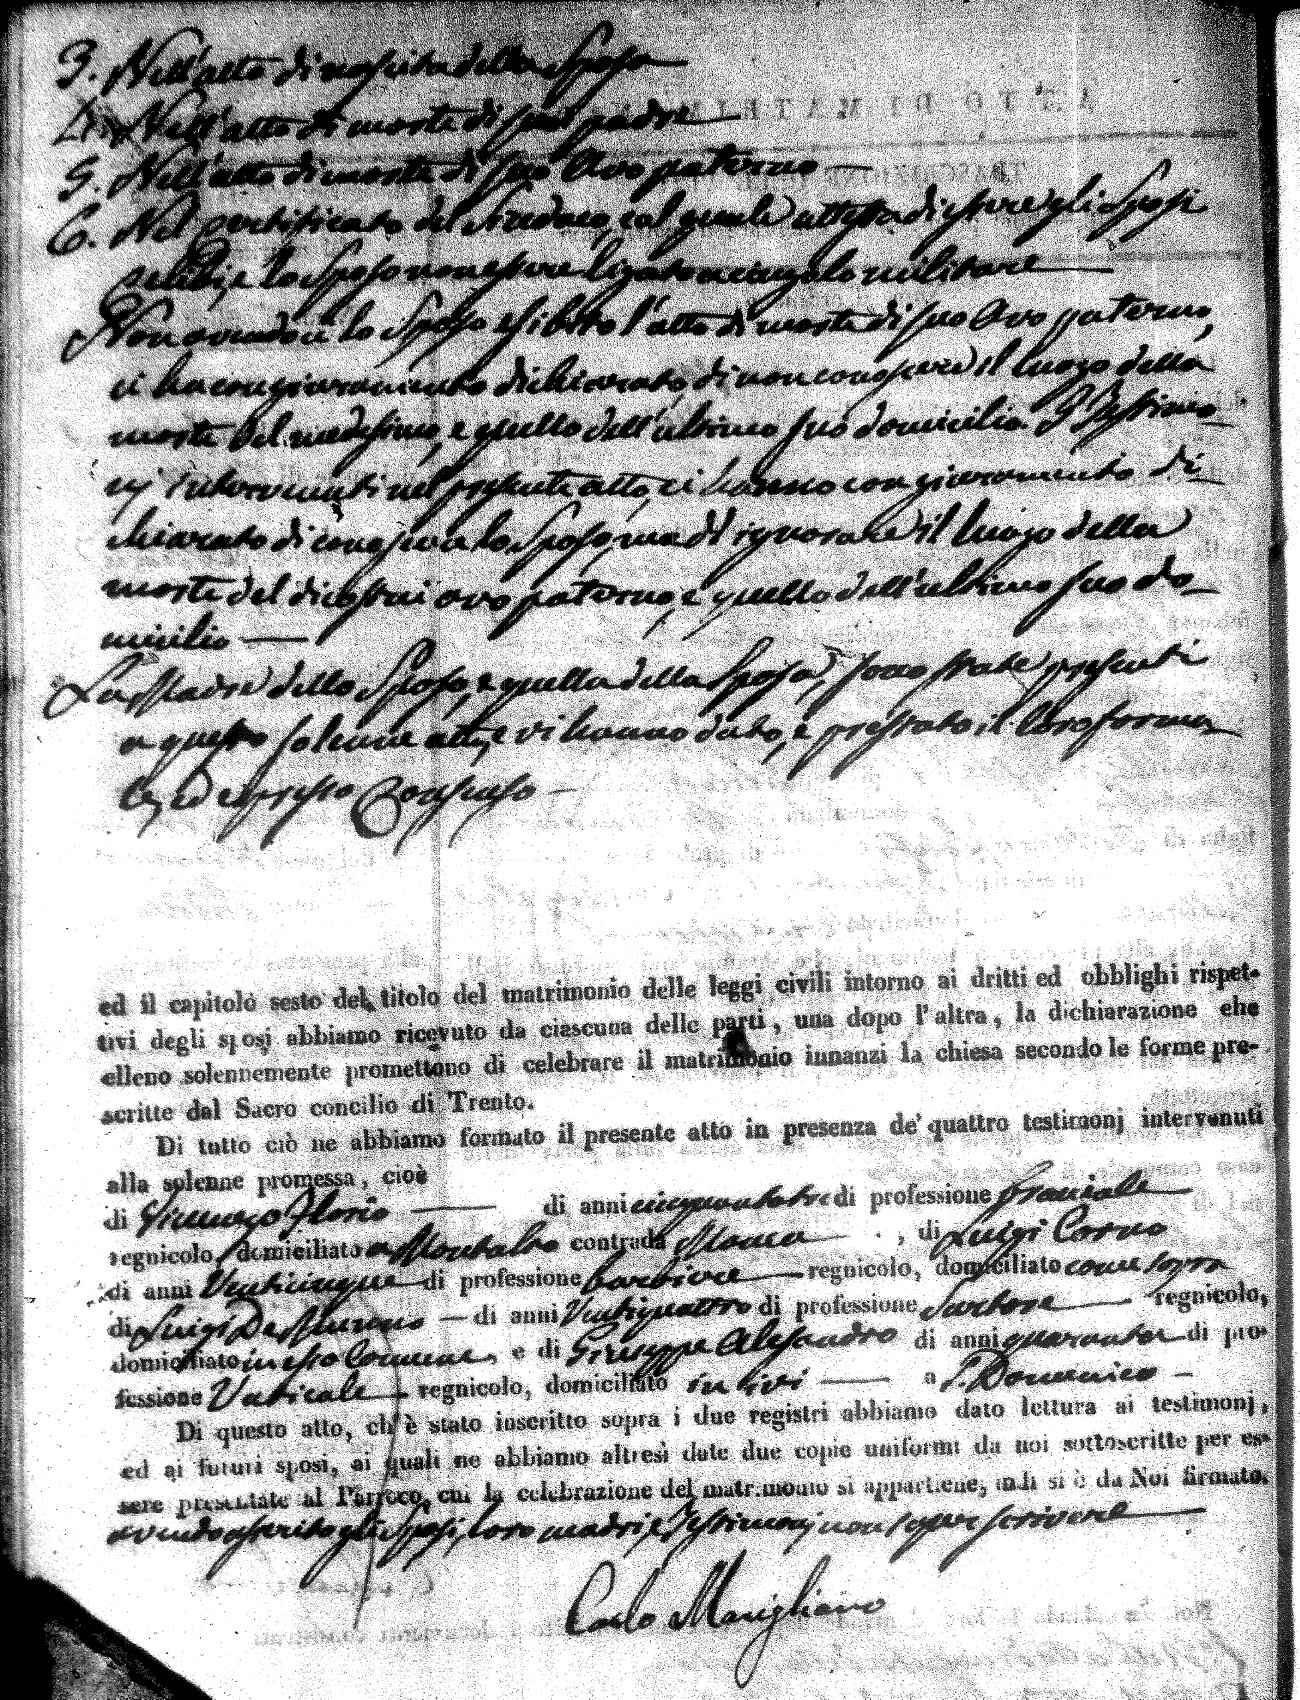 3. Nell'atto di nascita della Sposa
4. Nell'atto di morte di suo padre
5. Nell'atto di morte di suo Avo paterno
6. Nel certificato del Sindaco, col quale attesta di essere gli Sposi
celibi, e lo Sposo non essere ligato a cingolo militare
Non avendoci lo Sposo esibito l'atto di morte di suo Avo paterno,
ci ha con giuramento dichiarato, di non conoscere il luogo della
morte del medesimo, e quello dell'ultimo suo domicilio. I Testimo-
nj intervenuti nel presente atto, ci hanno con giuramento di-
chiarato di conoscere lo Sposo, ma d'ignorare il luogo della
morte del di costui avo paterno, e quello dell'ultimo suo do-
micilio
La Madre dello Sposo, e quella della Sposa, sono state presenti
a questo solenne atto, e vi hanno dato, e prestato il loro forma-
le, ed espresso Consenso
ed il capitolo sesto del titolo del matrimonio delle leggi civili intorno ai dritti ed obblighi rispet-
tivi degli sposi abbiamo ricevuto da ciascuna delle parti, una dopo l'altra, la dichiarazione che
elleno solennemente promettono di celebrare il matrimonio innanzi la chiesa secondo le forme pre-
scritte dal Sacro concilio di Trento.
Di tutto ciò ne abbiamo formato il presente atto in presenza de' quattro testimonj intervenuti
alla solenne promessa, cioè
di Vincenzo Florio di anni cinquantatre di professione
regnicolo, domiciliato a Montalto contrada , di Luigi Corno
di anni Venticinque di professione barbiere regnicolo, domiciliato come sopra
di Luigi De Munno di anni Ventiquattro di professione Sartore regnicolo,
domiciliato in esso Comune, e di Giuseppe Alesandro di anni quaranta di pro-
fessione Vaticale regnicolo, domiciliato in ivi a S. Domenico
Di questo atto, ch'è stato inscritto sopra i due registri abbiamo dato lettura ai testimonj,
ed ai futuri sposi, ai quali ne abbiamo altresì date due copie uniformi da noi sottoscritte per es-
sere presentate al Parroco, cui la celebrazione del matrimonio si appartiene, indi si è da Noi firmato.
avendo asserito gli Sposi, loro madri, e Testimonj non saper scrivere
Carlo Marigliano